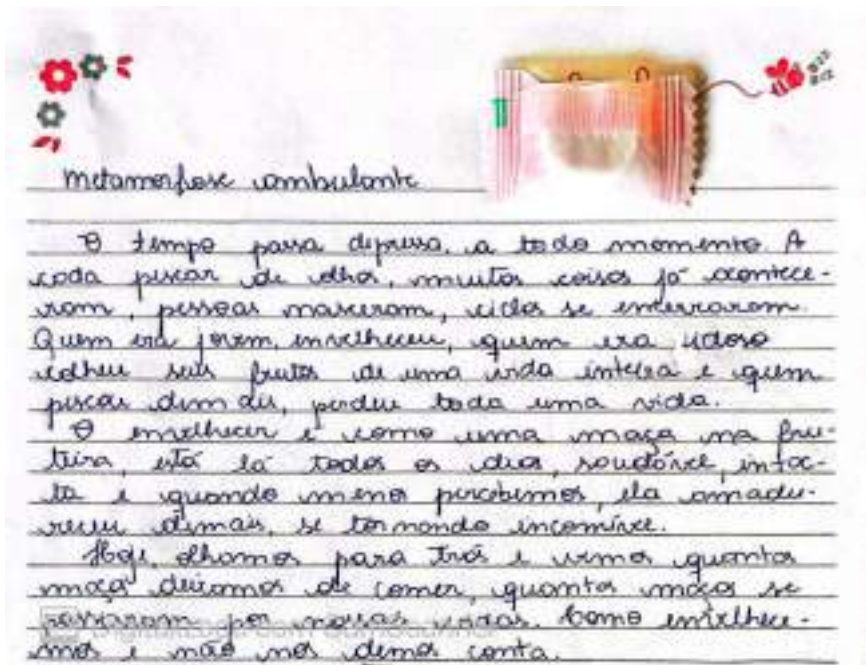 Metamorfose ambulante
O tempo passa depressa, a todo momento. A
cada piscar de olhos, muitas coisas já acontece-
ram, pessoas nasceram, ciclos se encerraram.
Quem era jovem, envelheceu, quem era idoso
colheu seus frutos de uma vida inteira e quem
piscou demais, perdeu toda uma vida.
O envelhecer é como uma maça na fru-
teira, está lá todos os dias, saudável, intac-
ta e quando menos percebemos, ela amadu-
receu demais, se tornando incomível.
Hoje, olhamos para trás e vemos quantas
maças deixamos de comer, quantas maças se
por nossas vidas. Como envelhece-
mos e não nos demos conta.